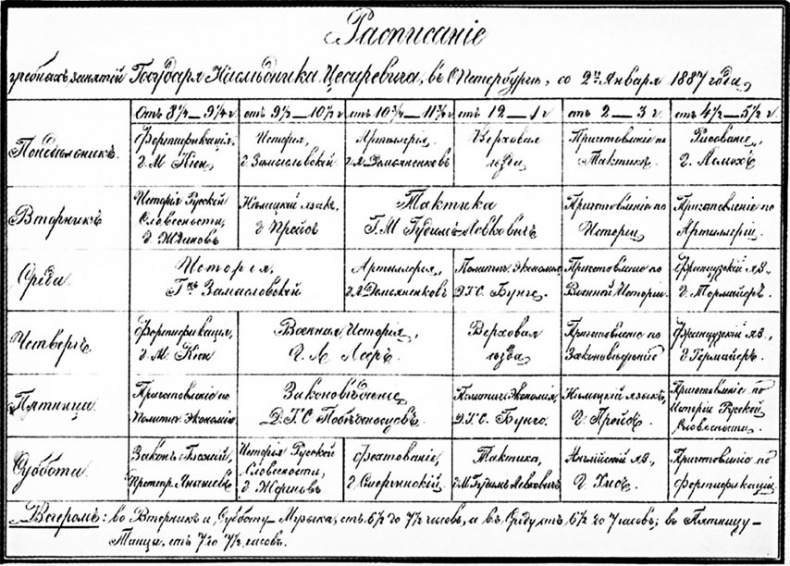 Расписаніе
учебныхъ занятій Государя Наслѣдника Цесаревича, въ С.Петербургѣ, со 2го Января 1887 года,
Отъ 8¾ — 9¼ ч. отъ 9½ — 10½ ч. отъ 10¾ — 11¾ ч. отъ 12 — 1 ч. отъ 2 — 3 ч. отъ 4½ — 5½ ч.
Понедѣльникъ.
Фортификація,
Г. М. Кюи
Исторія,
Г. Замысловскій
Артиллерія,
Г. Л. Демьяненковъ
Верховая
ѣзда
Приготовленіе по
Тактикѣ.
Рисованіе,
Вторникъ
Исторія Русской
Словесности,
Г. Ждановъ
Нѣмецкій языкъ,
Г. Прейсъ
Тактика
Г. М. Гудимъ-Левковичъ
Приготовленіе по
Исторіи
Приготовленіе по
Артиллеріи.
Среда
Исторія.
Г-нъ Замысловскій
Артиллерія,
Г. Л. Демьяненковъ
Политич. Экономія,
Д.Т.С. Бунге.
Приготовленіе по
Военной Исторіи.
Французскій яз.
Г. Лормайеръ.
Четвергъ
Фортификація,
Г. М. Кюи
Военная Исторія,
Г. Л. Лееръ.
Верховая
ѣзда
Приготовленіе по
Законовѣдѣнію
Французскій яз.,
Пятница
Приготовленіе по
Политич. Экономіи
Законовѣдѣніе,
Д.Т.С. Побѣдоносцевъ.
Политич. Экономія,
Д.Т.С. Бунге.
Нѣмецкій языкъ,
Г. Прейсъ.
Приготовленіе по
Исторіи Русской
Словесности.
Суббота
Законъ Божій,
Протопр. Янышевъ
Исторія Русской
Словесности,
Г. Ждановъ
Фехтованіе,
Тактика,
Г. М. Гудимъ-Левковичъ.
Англійскій яз.,
Г. Хисъ.
Приготовленіе по
Фортификаціи
Вечеромъ: во Вторникъ и Субботу — Музыка, отъ 6½ до 7½ часовъ, а въ Среду отъ 6½ до 7 часовъ; въ Пятницу —
Танцы, отъ 7 до 7½ часовъ.